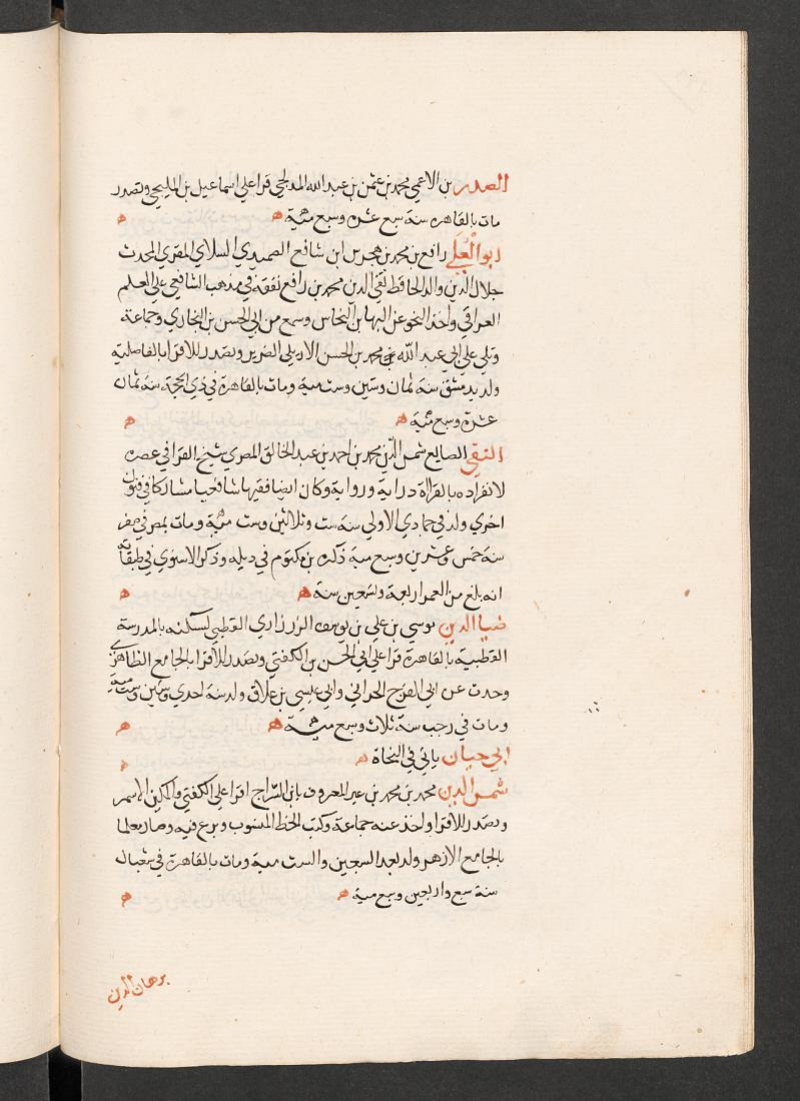 الصدر بن الاعمي محمد بن عثمن بن عبد الله المدلجي قرا علي اسماعيل بن المليجي وتصدر
مات بالقاهره سنة سبع عشرة وسبع مئية ه ه
ابو العلي رافع بن محمد بن هجرس ابن شافع الصميدي السلاي المقري المحدث
جلال الدين والد الحافظ تقي الدين محمد بن رافع تفقه في مذهب الشافعي علي العلم
العراقي واخذ النحو عن البها بن النحاس وسمع من ابي الحسن بن البخاري وجماعة
وتلي علي ابي عبد الله محمد بن الحسن الاربلي الضرير وتصدر للاقرا بالفاضلية
ولد بدمشق سنة ثمان وستين وست مية ومات بالقاهرة في ذي الحجة سنة ثمان
عشرة وسبع مئية ه ه
التقي الصايع شمس الدين محمد بن احمد بن عبد الخالق المصري شيخ القرا في عصره
لانفراده بالقراة دراية ورواية وكان ايضا فقيها شافعيا مشاركا في فنون
اخري ولد في جمادي الاولي سنة ست وثلاثين وست مئية ومات بمصر في صفر
سنة خمس وعشرين وسبع مية ذكره بن مكتوم في ذيله وذكر الاسنوي في طبقاته
انه بلغ من العمر اربعة وتسعين سنة ه ه
ضيا الدين موسي بن علي بن يوسف الزرزاري القطبي لسكنه بالمدرسة
القطبية بالقاهرة قرا علي ابي الحسن بن الكفتي وتصدر للاقرا بالجامع الظاهري
وحدث عن ابي الفرج الحراني وابي عيسي بن علاق ولد سنة احدي وستين وست مية
ومات في رجب سنة ثلاث وسبع مئية ه ه
ابي حيان ياتي في النحاة ه ه
شمس الدين محمد بن محمد بن عبر المعروف بابن السراج اقرا علي الكفتي والمكين الاسمر
وتصدر للاقرا واخذ عنه جماعة وكتب الخط المنسوب وبرع فيه وصار معلما
بالجامع الازهر ولد بعد السبعين والست مية ومات بالقاهرة في شعبان
سنة سبع واربعين وسبع مية ه ه
برهان الدين